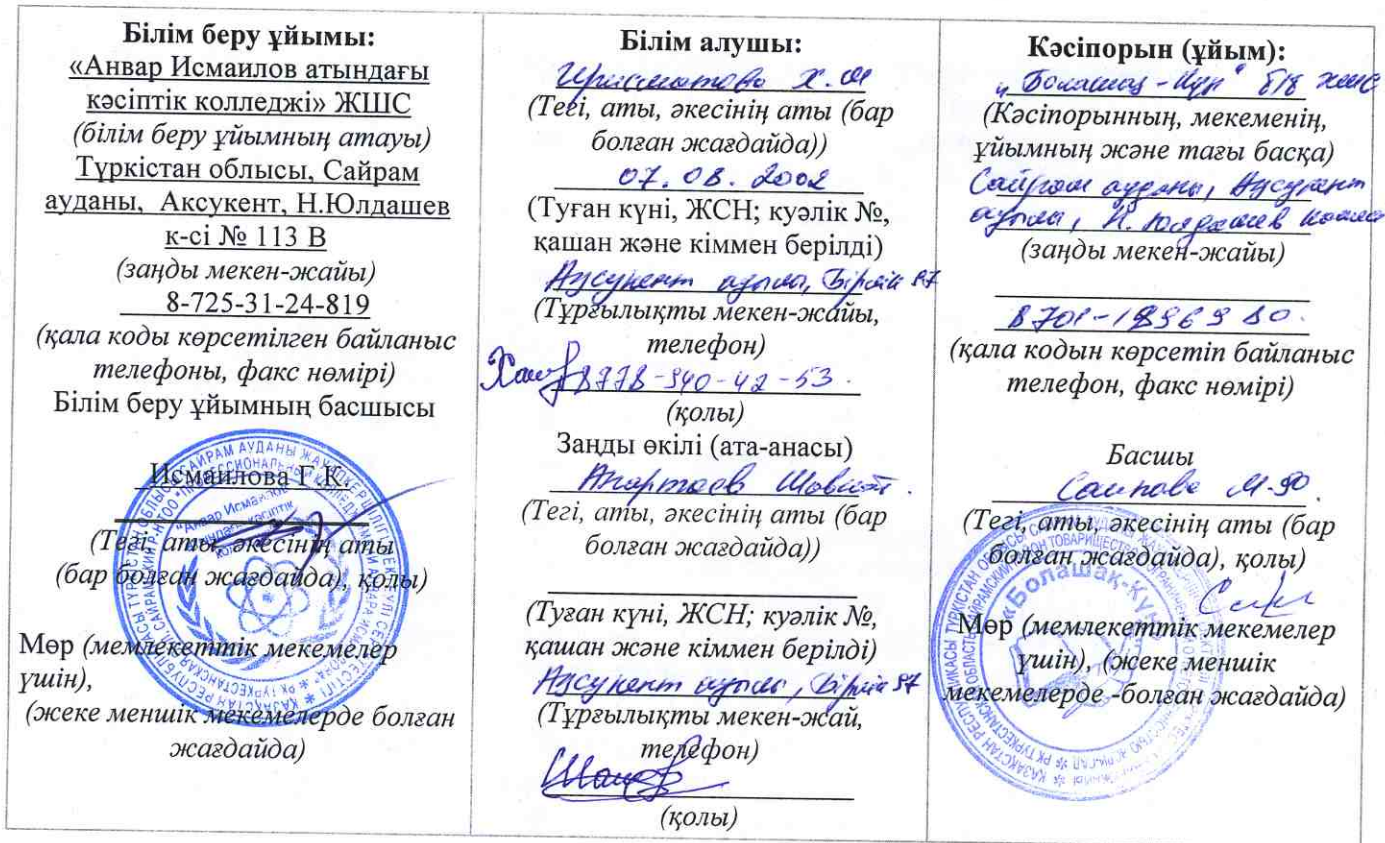 Білім беру ұйымы:
«Анвар Исмаилов атындағы
кәсіптік колледжі» ЖШС
(білім беру ұйымның атауы)
Түркістан облысы, Сайрам
ауданы, Аксукент, Н.Юлдашев
к-сі № 113 В
(заңды мекен-жайы)
8-725-31-24-819
(қала коды көрсетілген байланыс
телефоны, факс нөмірі)
Білім беру ұйымның басшысы
Исмаилова Г.К.
(Тегі, аты, әкесінің аты
(бар болған жағдайда), қолы)
Мөр (мемлекеттік мекемелер
үшін),
(жеке меншік мекемелерде болған
жағдайда)
Білім алушы:
Х.М
(Тегі, аты, әкесінің аты (бар
болған жағдайда))
07.08.2002
(Туған күні, ЖСН; куәлік №,
қашан және кіммен берілді)
Ақсукент ауылы, Бірлік 97
(Тұрғылықты мекен-жайы,
телефон)
8778-940-42-53.
(қолы)
Заңды өкілі (ата-анасы)
(Тегі, аты, әкесінің аты (бар
болған жағдайда))
(Туған күні, ЖСН; куәлік №,
қашан және кіммен берілді)
Ақсукент ауылы, Бірлік 97
(Тұрғылықты мекен-жай,
телефон)
(қолы)
Кәсіпорын (ұйым):
"Болашақ-Күн" б/б ЖШС
(Кәсіпорынның, мекеменің,
ұйымның және тағы басқа)
Сайрам ауданы, Ақсукент
ауылы, Н. Юлдашев көшесі
(заңды мекен-жайы)
(қала кодын көрсетіп байланыс
телефон, факс нөмірі)
Басшы
Саипова М.
(Тегі, аты, әкесінің аты (бар
болған жағдайда), қолы)
«Болашақ-Күн»
Мөр (мемлекеттік мекемелер
үшін), (жеке меншік
мекемелерде -болған жағдайда)